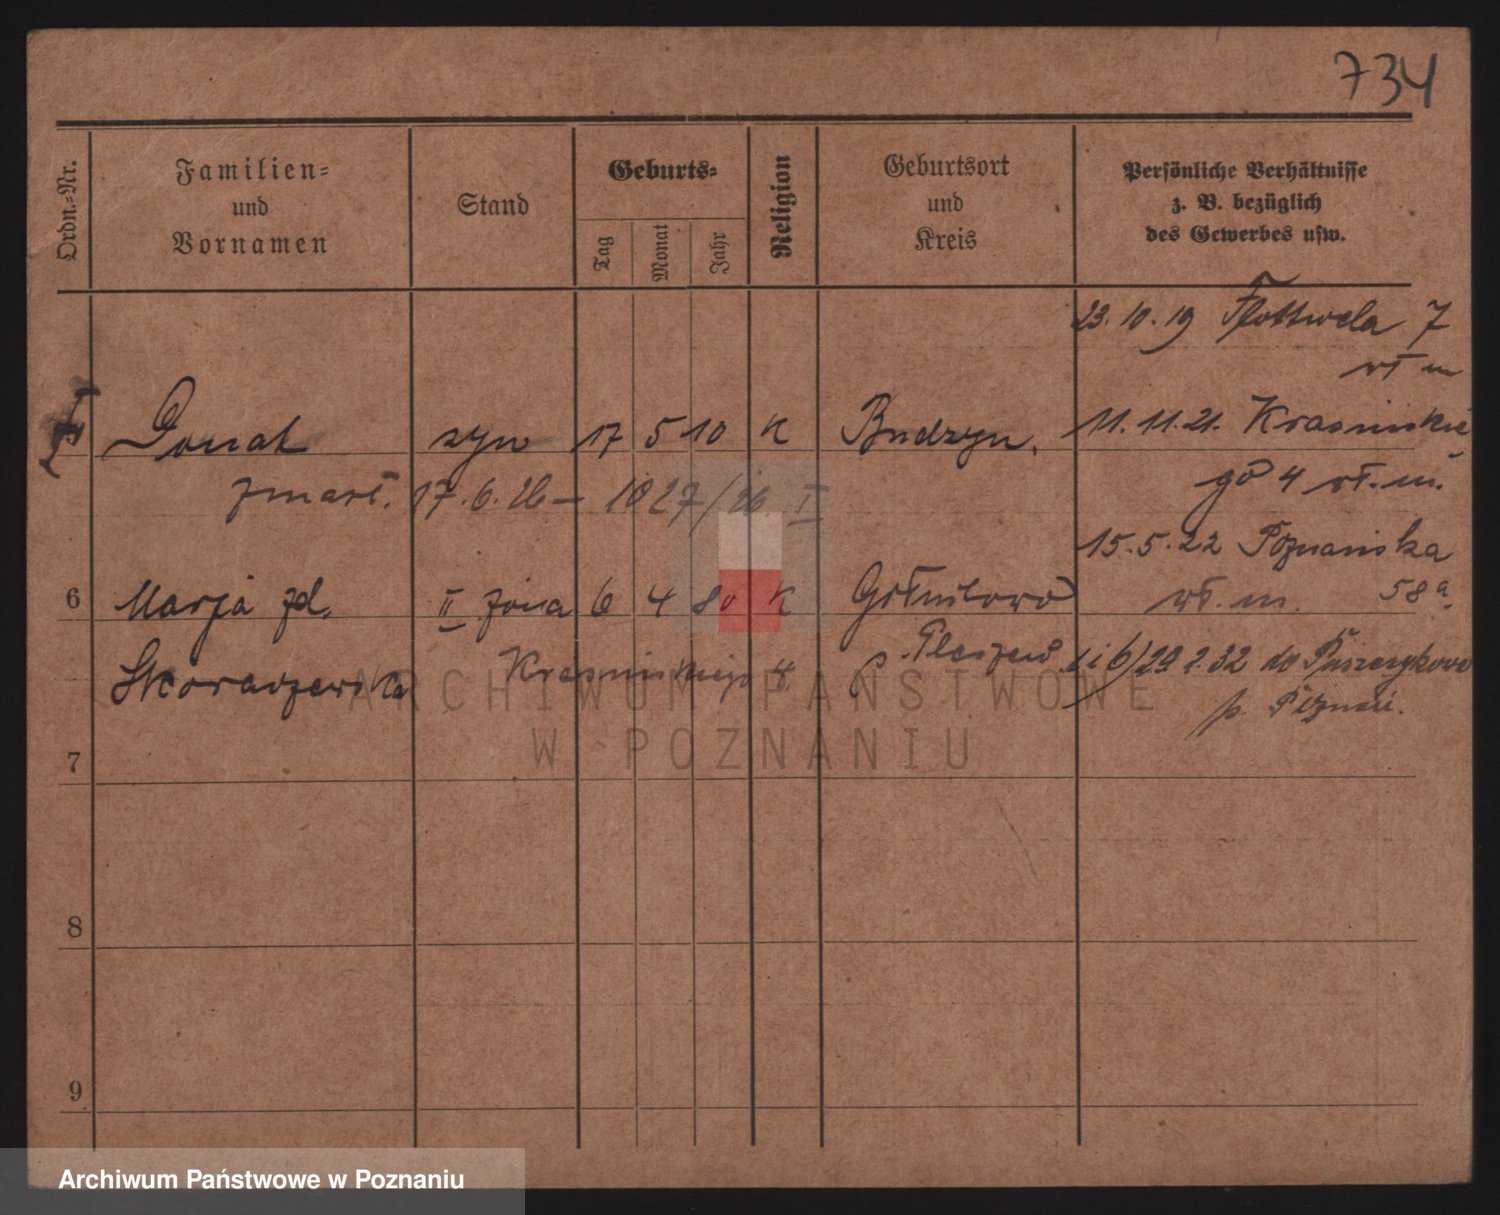 734
Ordn.-Nr.
Familien-
und
Vornamen
Stand
Geburts-
Tag
Monat
Jahr
Religion
Geburtsort
und
Kreis
Persönliche Verhältnisse
z. B. bezüglich
des Gewerbes usw.
23. 10. 19 Flottwela 7
wł m
Donat syn 17 5 10 K Budzyn.
11. 11. 21. Krasińskie
go 4 wł. m.
zmarł. 17. 6. 26 – 1027/26 I
15. 5. 22 Poznańska
58a.
wł. m.
6 Marja zd. II żona 6 4 80 K
Skoraszewska
Krasińskiego 4.
Pleszew
1 i 6) 29 2. 32 do Puszczykowo
p. Poznań.
7
8
9
ARCHIWUM PAŃSTWOWE
W POZNANIU
Archiwum Państwowe w Poznaniu